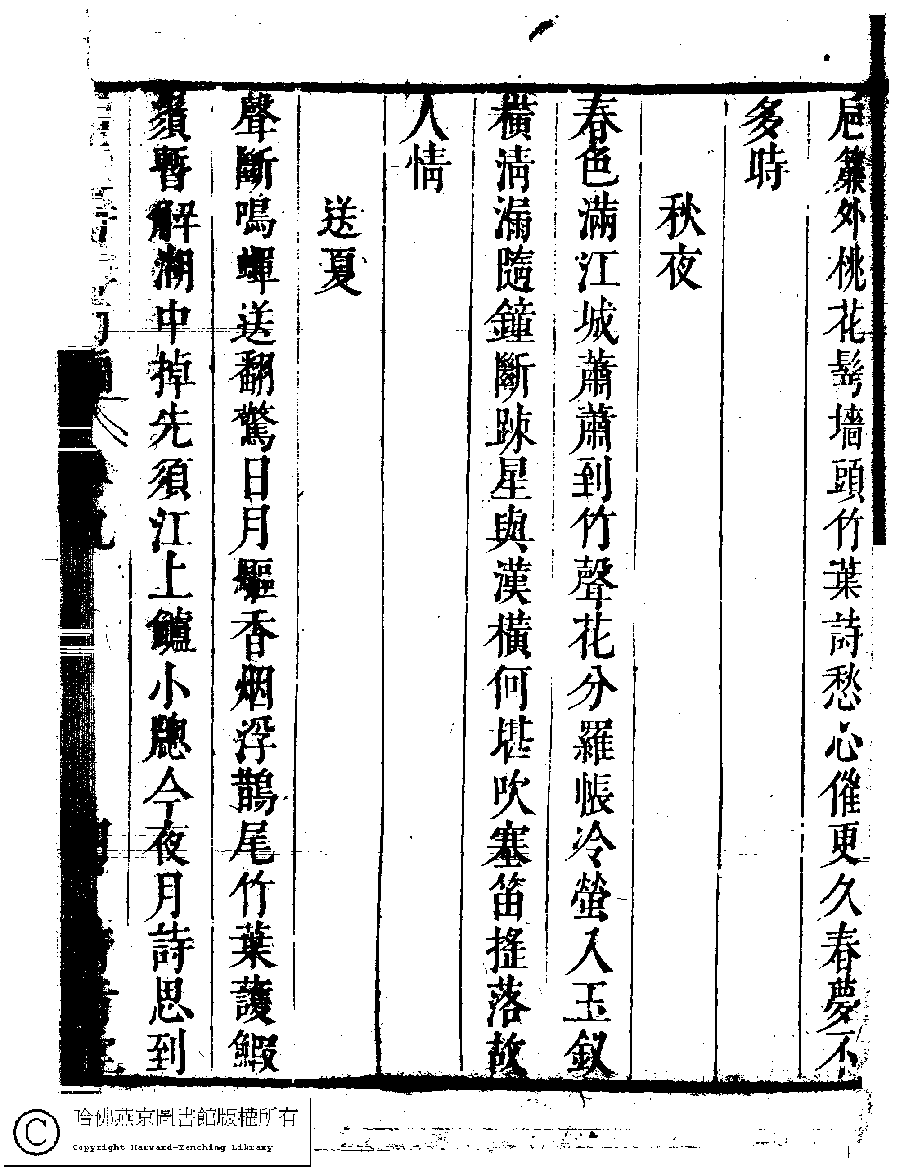 卮簾外桃花髩墻頭竹葉詩愁心催更久春夢不
多時
秋夜
春色滿江城蕭蕭到竹聲花分羅帳冷螢入玉釵
橫清漏隨鐘斷踈星與漢橫何堪吹塞笛搖落故
人情
送夏
聲斷鳴蟬送翻驚日月驅香烟浮鵲尾竹葉護鰕
鬚暫解湖中掉先須江上鱸小牕今夜月詩思到
哈佛燕京圖書館版權所有
Copyright Harvard-Yenching Library